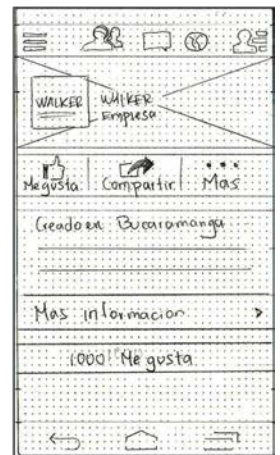 WALKER
WALKER
Empresa
Me gusta
Compartir
Mas
Creado en Bucaramanga
Mas informacion
1.000 Me gusta